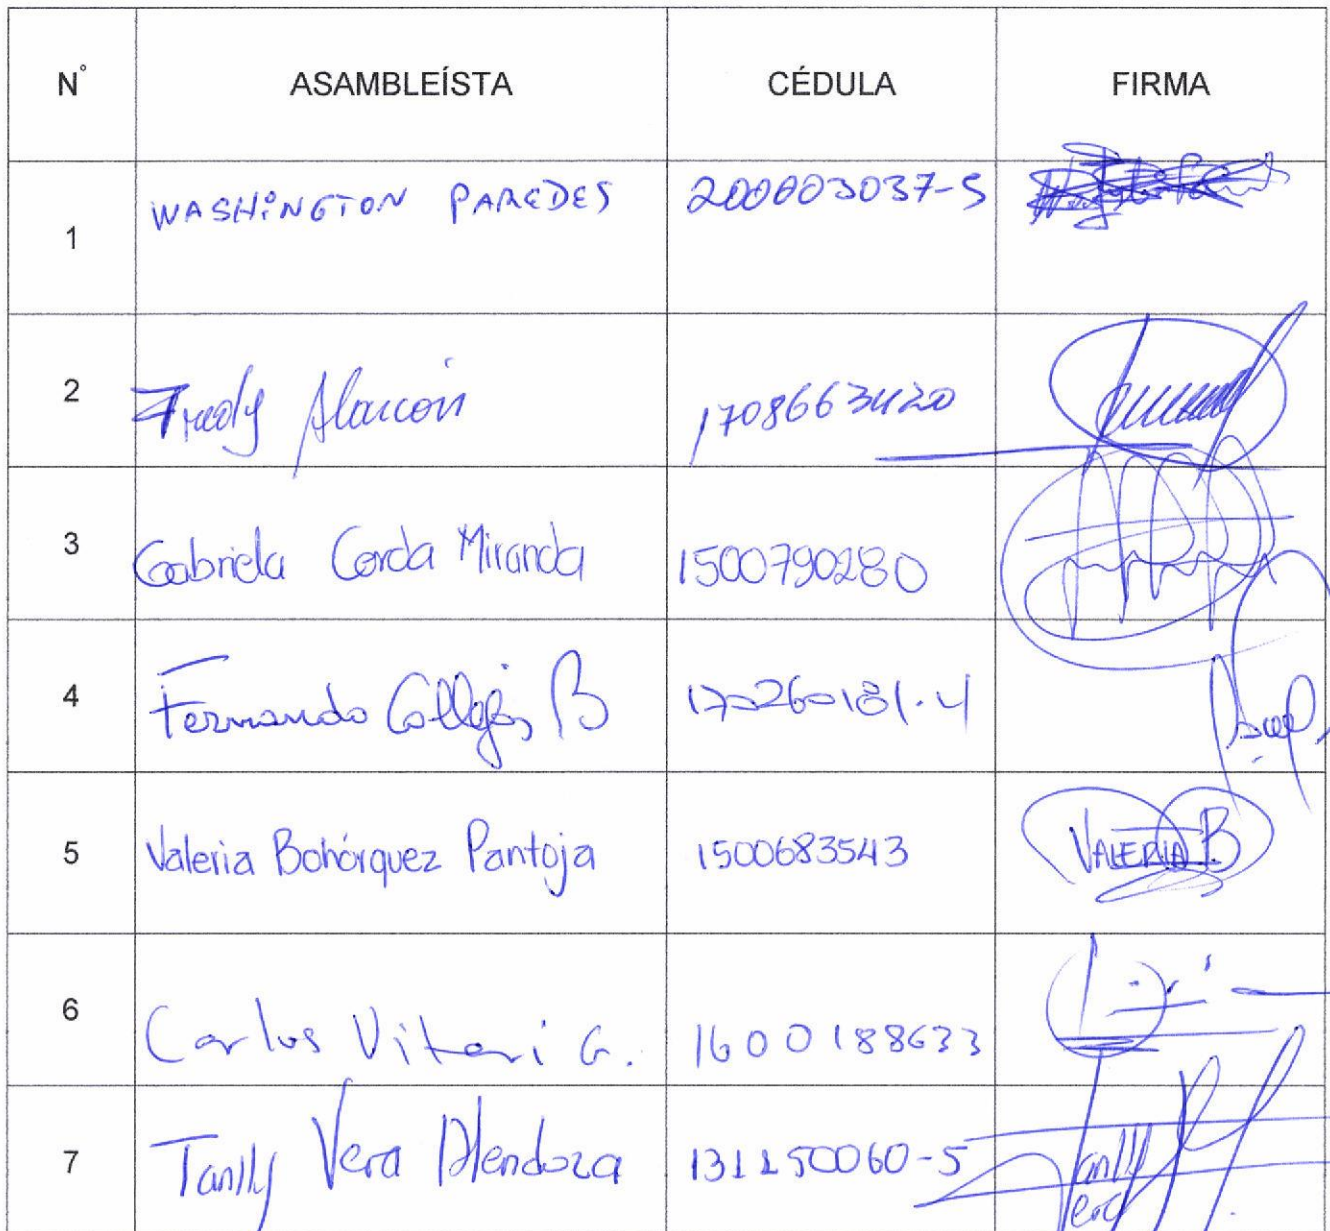 N° ASAMBLEÍSTA CÉDULA FIRMA
1 WASHINGTON PAREDES 200003037-5
2 Fredy Alarcón 1708663420
3 Gabriela Cerda Miranda 1500790280
4 Fernando Callejas B 170260181-4
5 Valeria Bohórquez Pantoja 1500683543 VALERIA B
6 Carlos Viteri G. 1600188633
7 Tanlly Vera Mendoza 131150060-5 Tanlly Vera